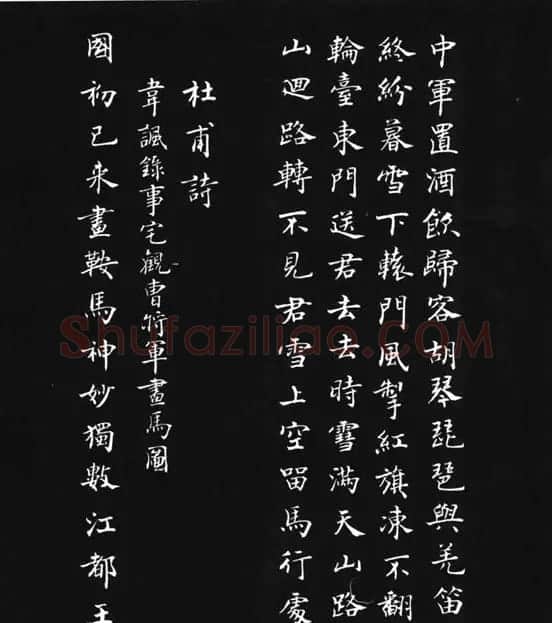 中軍置酒飲歸客胡琴琵琶與羌笛
終紛暮雪下轅門風掣紅旗凍不翻
輪臺東門送君去去時雪滿天山路
山迴路轉不見君雪上空留馬行處
杜甫詩
韋諷錄事宅觀曹將軍畫馬圖
國初已來畫鞍馬神妙獨數江都王
Shufaziliao.COM